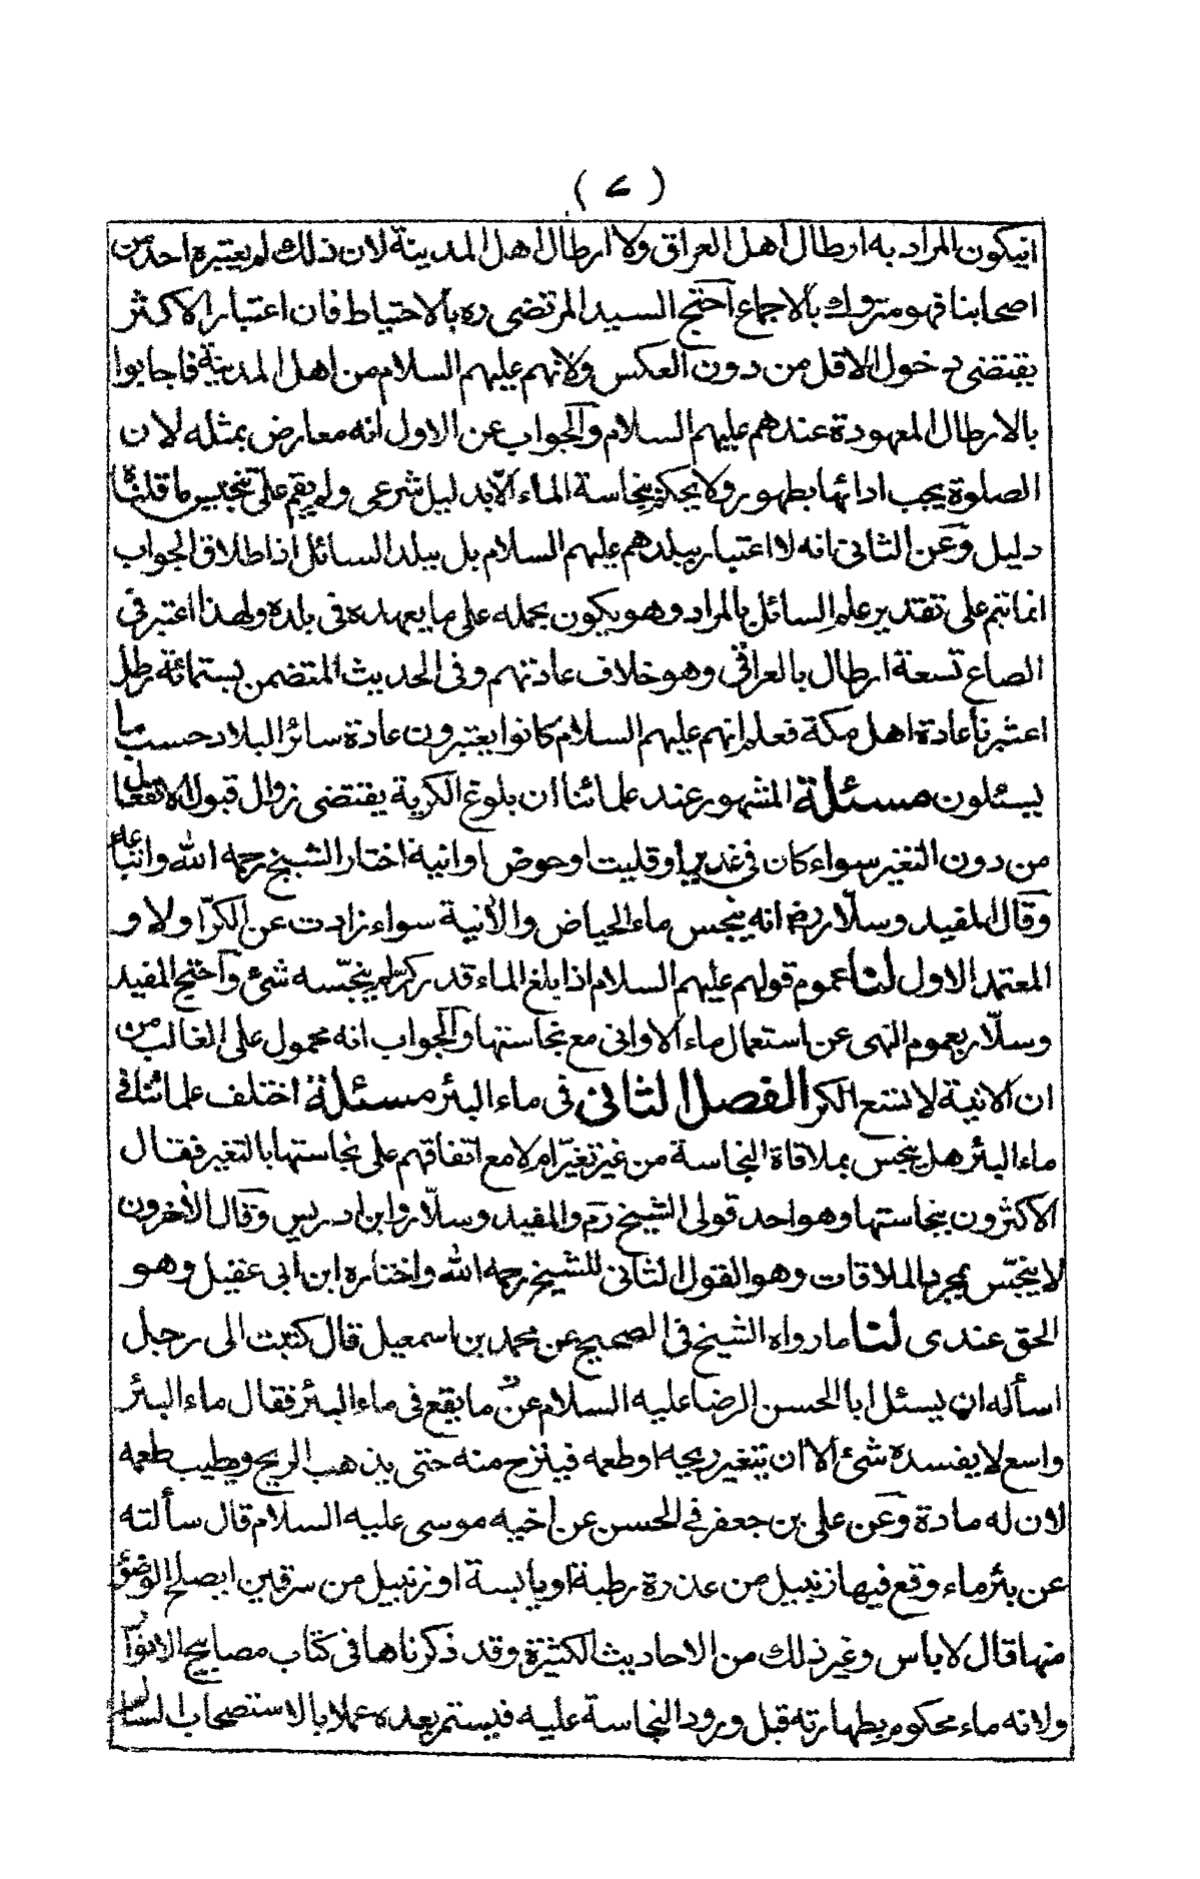 ( ے )
انيكون المراد به ارطال اهل العراق ولا ارطال اهل المدينة لان ذلك لم يعتبره احد من
اصحابنا فهو متروك بالاجماع احتج السيد المرتضى ره بالاحتياط فان اعتبار الاكثر
يقتضى دخول الاقل من دون العكس ولانهم عليهم السلام من اهل المدينة فاجابوا
بالارطال المعهودة عندهم عليهم السلام والجواب عن الاول انه معارض بمثله لان
الصلوة يجب ادائها بطهور ولا يحكم بنجاسة الماء الا بدليل شرعى ولم يقم على تنجيس ما قلناه
دليل وعن الثانى انه لا اعتبار ببلدهم عليهم السلام بل ببلد السائل اذ اطلاق الجواب
انما تيم على تقدير علم السائل بالمراد وهو يكون بحمله على ما يعهده فى بلده ولهذا اعتبر فى
الصاع تسعة ارطال بالعراقى وهو خلاف عادتهم وفى الحديث المتضمن بستمائة رطل
اعتبرنا عادة اهل مكة فعلم انهم عليهم السلام كانوا يعتبرون عادة سائر البلاد حسب ما
يسئلون مسئلة المشهور عند علمائنا ان بلوغ الكرية يقتضى زوال قبول الانفعال
من دون التغير سواء كان فى غدير او قليت او حوض او انية اختار الشيخ رحمه الله واتباعه
وقال المفيد وسلار رض انه ينجس ماء الحياض والانية سواء زادت عن الكر او لا و
المعتمد الاول لنا عموم قولهم عليهم السلام اذا بلغ الماء قدر كر لم ينجسه شئ واحتج المفيد
وسلار بعموم النهى عن استعمال ماء الاوانى مع نجاستها والجواب انه محمول على الغالب من
ان الانية لا تسع الكر الفصل الثانى فى ماء البئر مسئلة اختلف علمائنا فى
ماء البئر هل ينجس بملاقاة النجاسة من غير تغير ام لا مع اتفاقهم على نجاستها بالتغير فقال
الاكثرون بنجاستها وهو احد قولى الشيخ ره والمفيد وسلار وابن ادريس وقال الاخرون
لا ينجس بمجرد الملاقات وهو القول الثانى للشيخ رحمه الله واختاره ابن ابى عقيل وهو
الحق عندى لنا ما رواه الشيخ فى الصحيح عن محمد بن اسمعيل قال كتبت الى رجل
اسأله ان يسئل ابا الحسن الرضا عليه السلام عن ما يقع فى ماء البئر فقال ماء البئر
واسع لا يفسده شئ الا ان يتغير ريحه او طعمه فينزح منه حتى يذهب الريح ويطيب طعمه
لان له مادة وعن على بن جعفر فى الحسن عن اخيه موسى عليه السلام قال سألته
عن بئر ماء وقع فيها زنبيل من عذرة رطبة او يابسة او زنبيل من سرقين ايصلح الوضوء
منها قال لا باس وغير ذلك من الاحاديث الكثيرة وقد ذكرناها فى كتاب مصابيح الانوار
ولانه ماء محكوم بطهارته قبل ورود النجاسة عليه فيستمر بعده عملا بالاستصحاب السالم